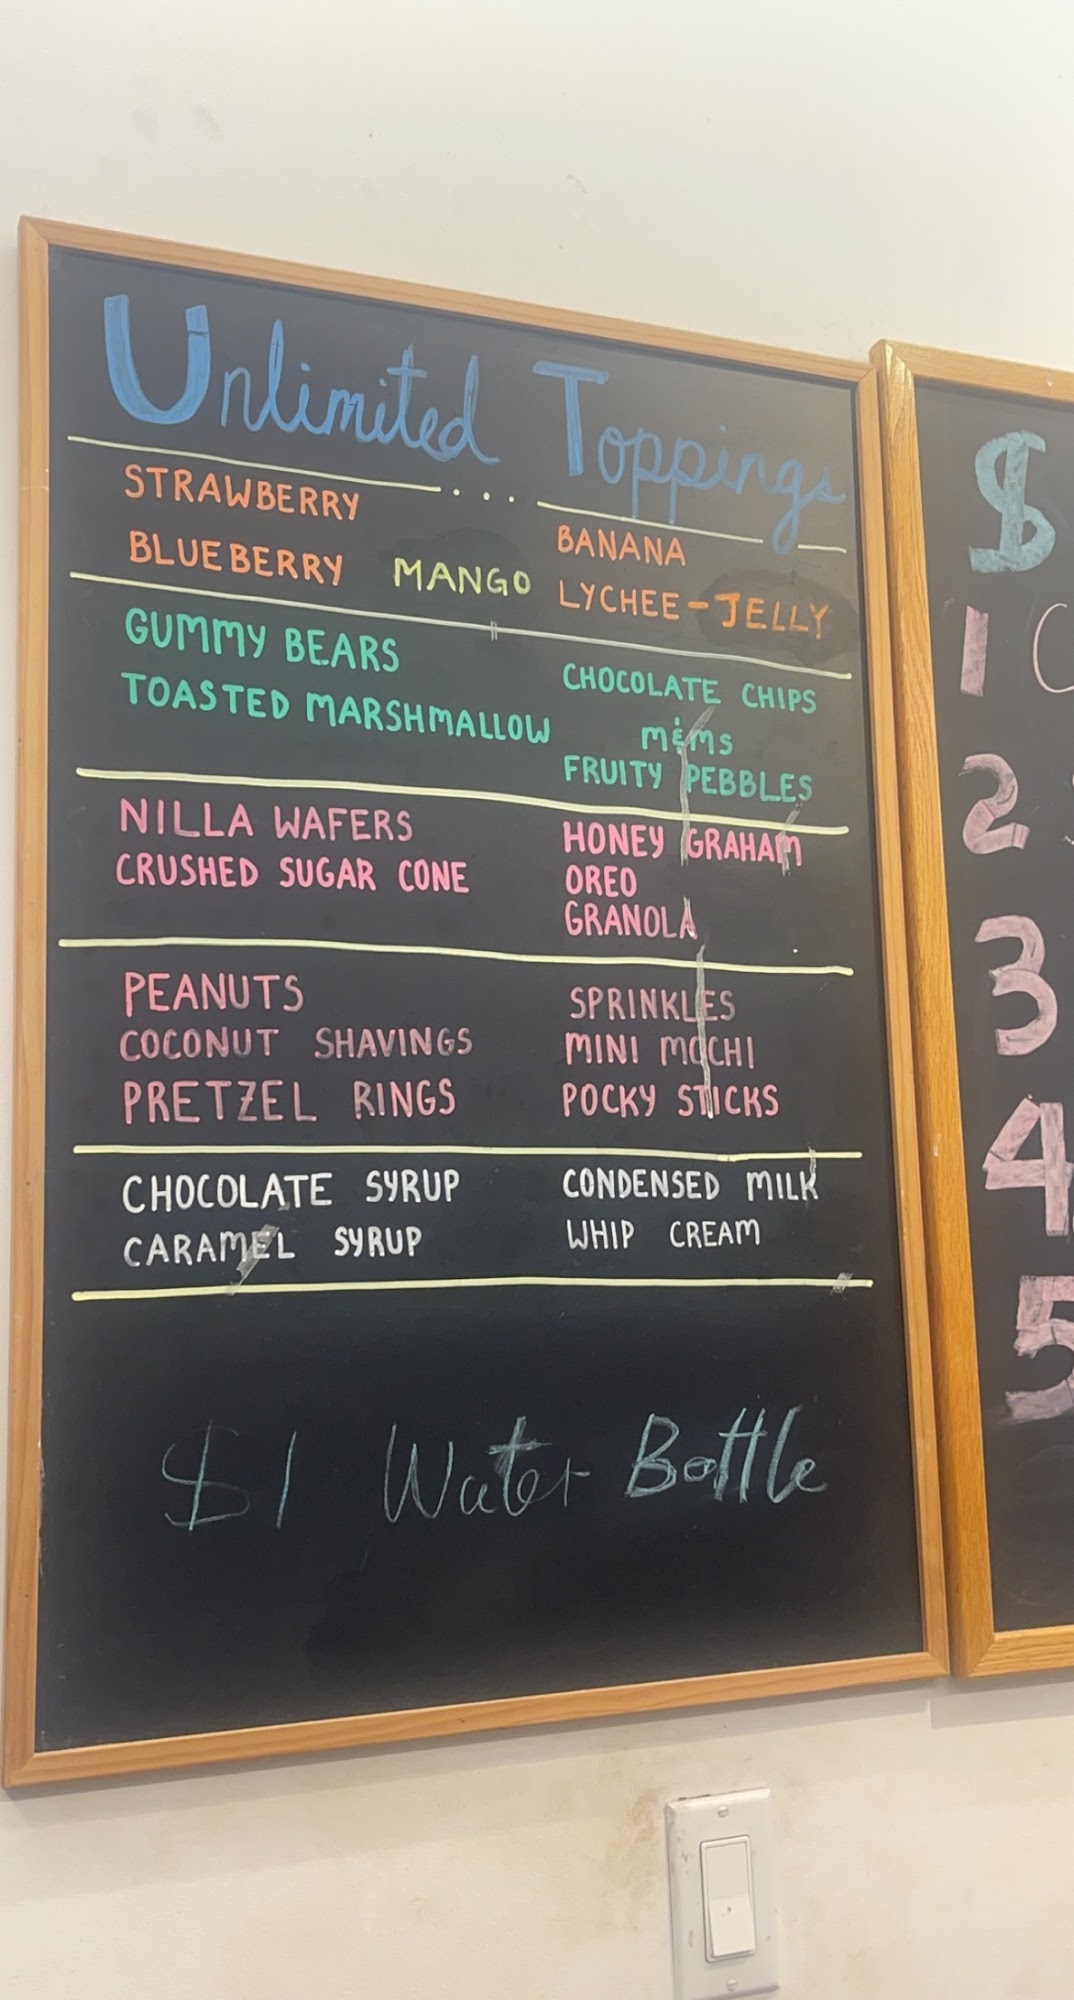 Unlimited Toppings
STRAWBERRY
BLUEBERRY
MANGO
BANANA
LYCHEE-JELLY
GUMMY BEARS
TOASTED MARSHMALLOW
CHOCOLATE CHIPS
m&ms
FRUITY PEBBLES
NILLA WAFERS
CRUSHED SUGAR CONE
HONEY GRAHAM
OREO
GRANOLA
PEANUTS
COCONUT SHAVINGS
PRETZEL RINGS
SPRINKLES
MINI MOCHI
POCKY STICKS
CHOCOLATE SYRUP
CARAMEL SYRUP
CONDENSED MILK
WHIP CREAM
$1 Water Bottle
$
1
2
3
4
5